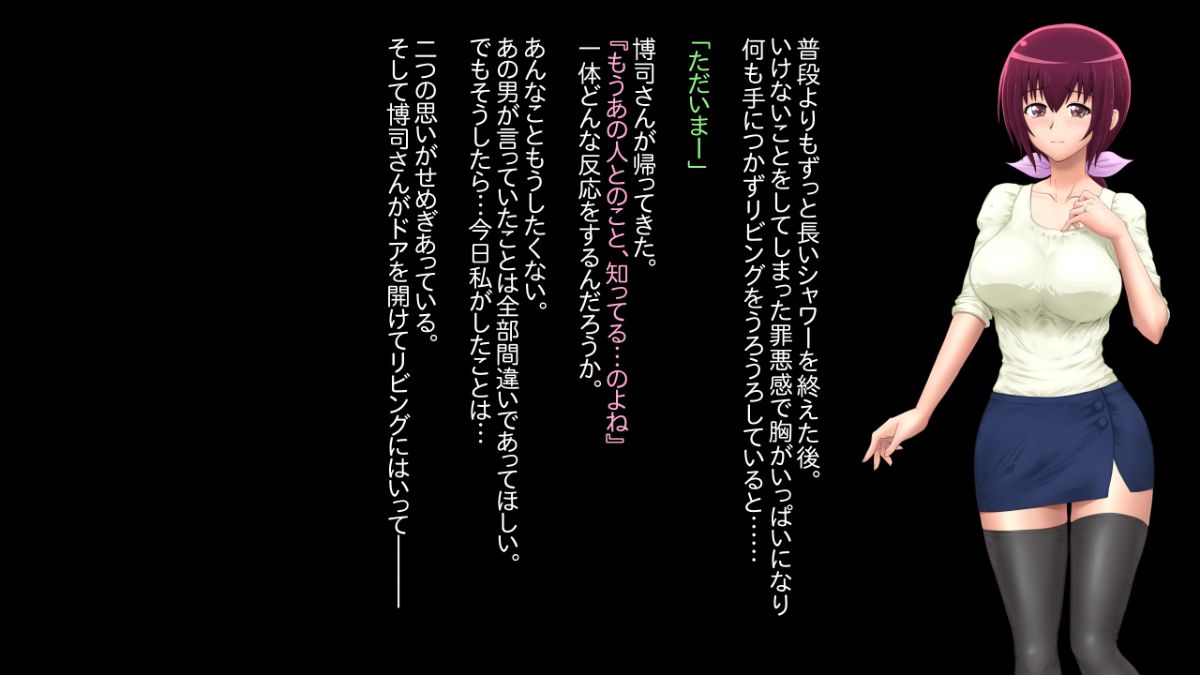 普段よりもずっと長いシャワーを終えた後。
いけないことをしてしまった罪悪感で胸がいっぱいになり
何も手につかずリビングをうろうろしていると……
「ただいまー」
博司さんが帰ってきた。
『もうあの人とのこと、知ってる…のよね』
一体どんな反応をするんだろうか。
あんなこともうしたくない。
あの男が言っていたことは全部間違いであってほしい。
でもそうしたら…今日私がしたことは…
二つの思いがせめぎあっている。
そして博司さんがドアを開けてリビングにはいって―――